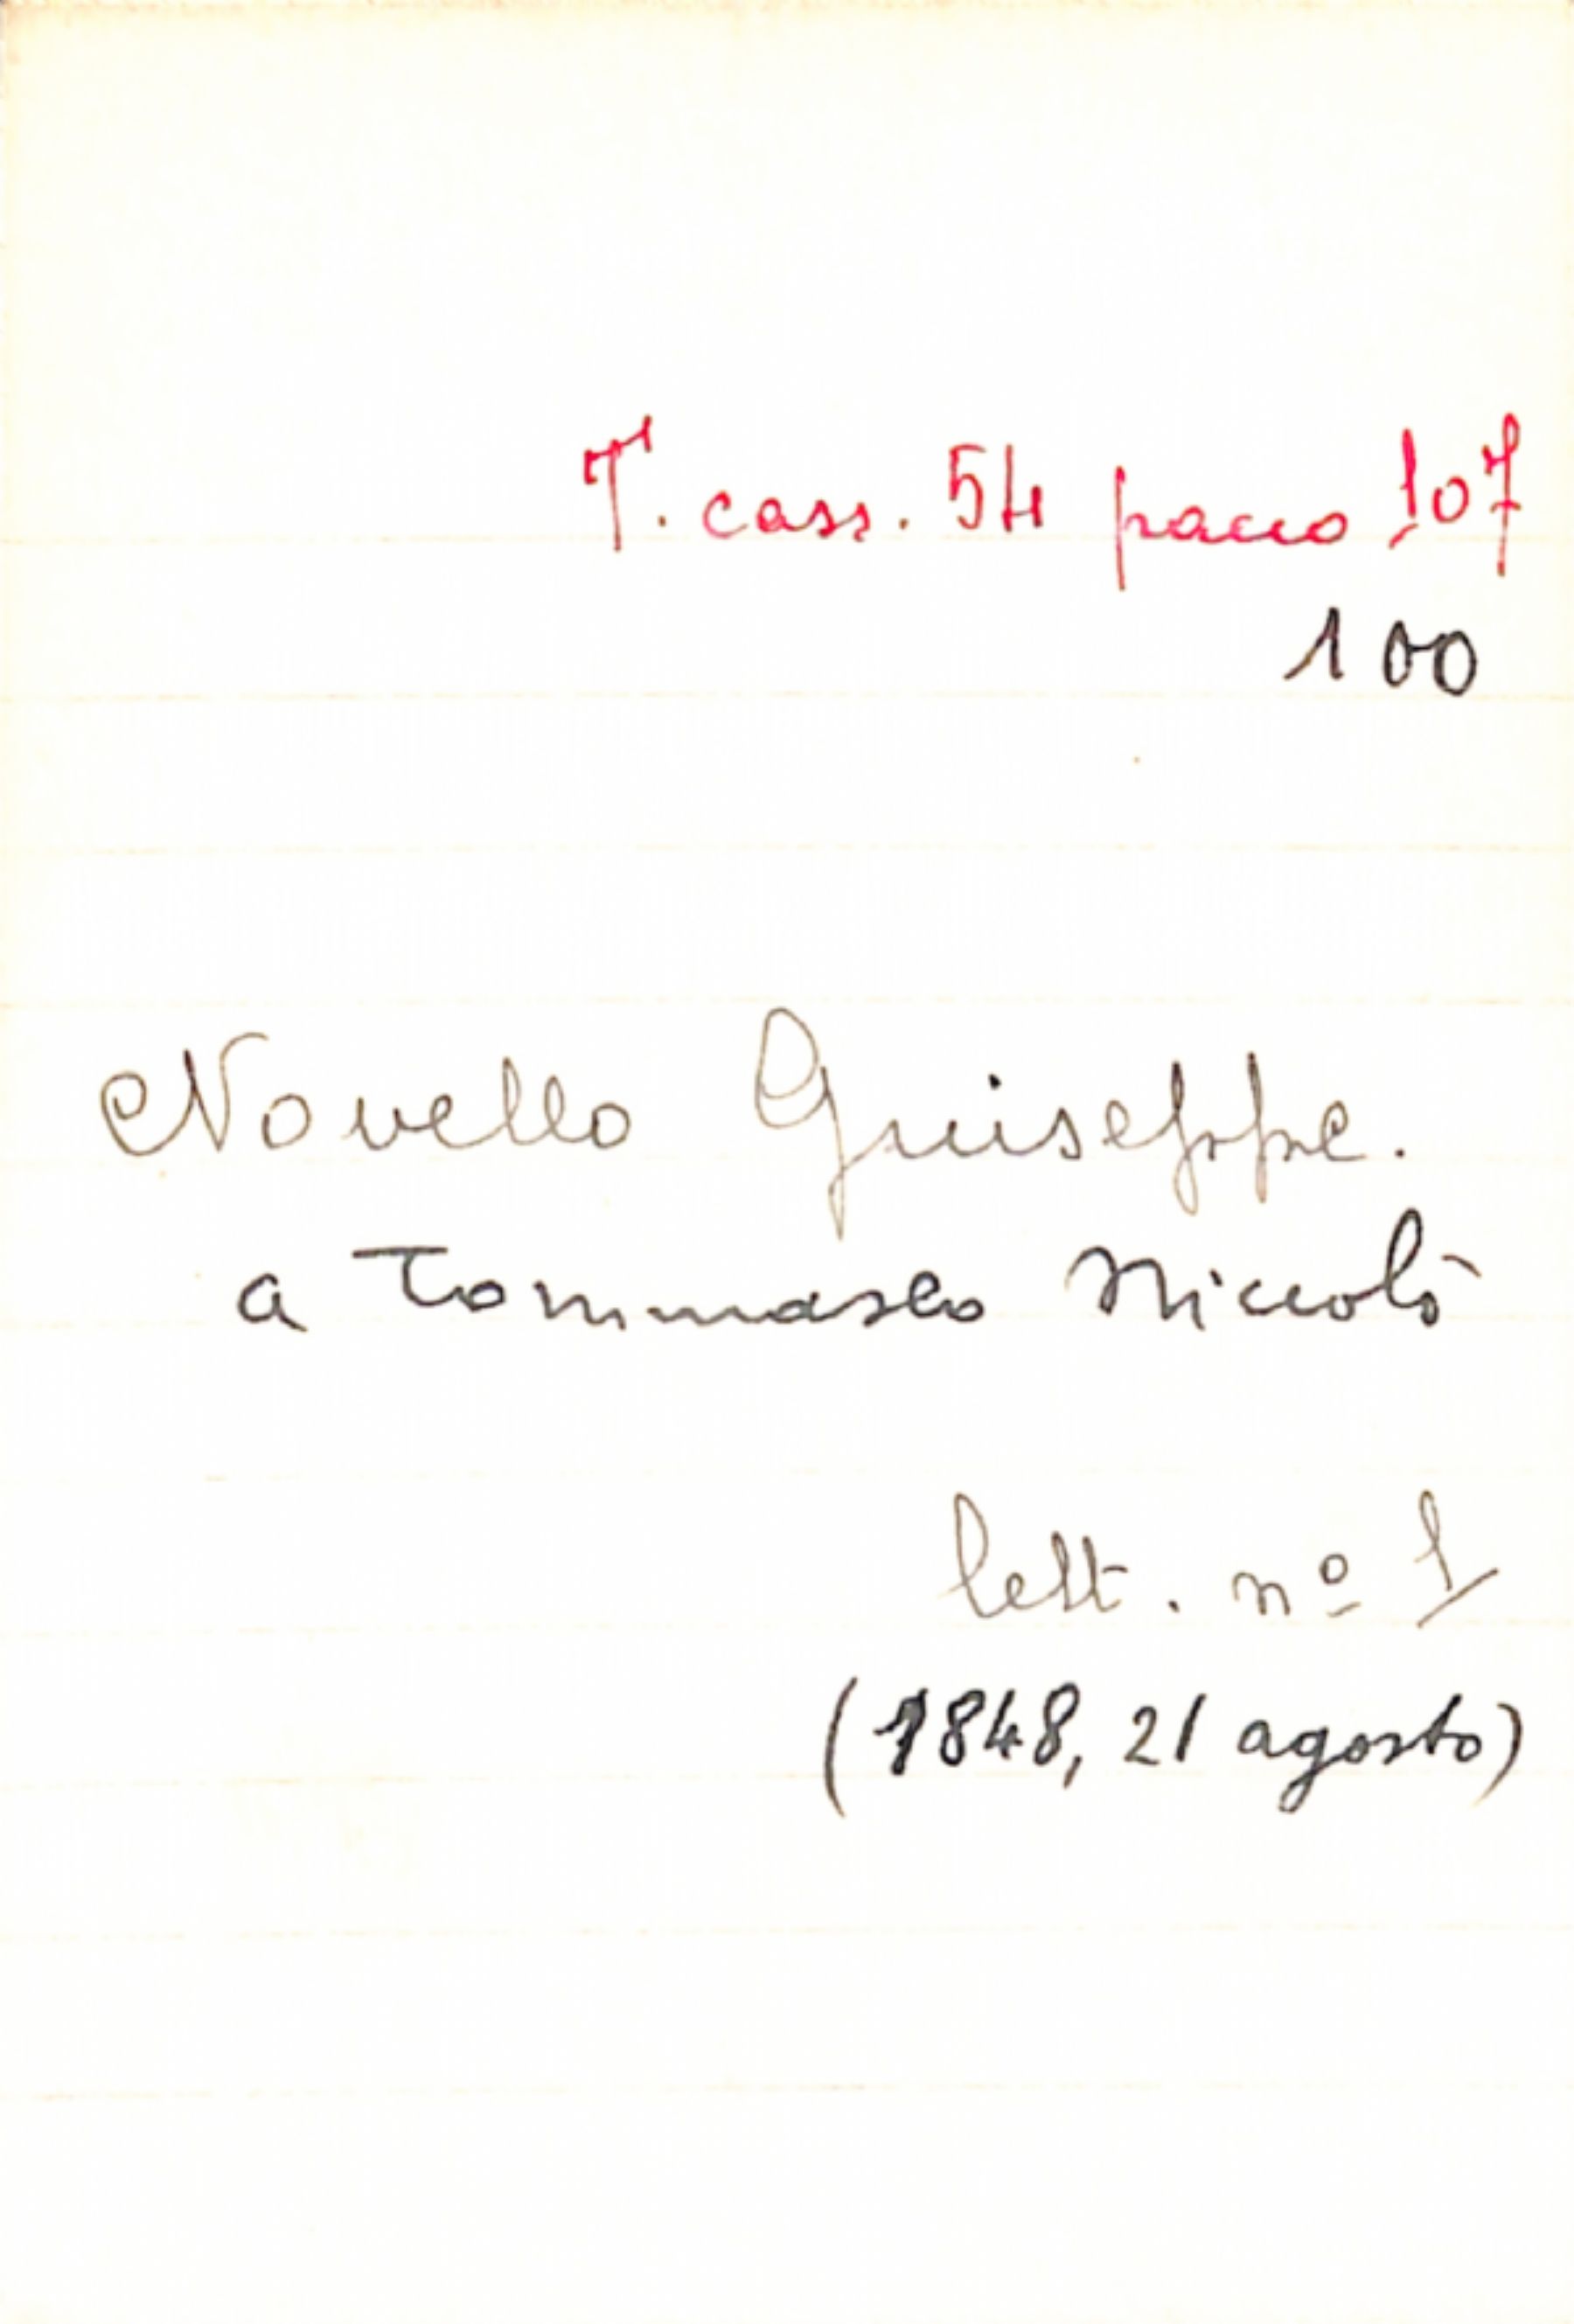 T. cass. 54 pacco 107
100
Novello Giuseppe.
a Tommaseo Niccolò
lett. nº 1
(1848, 21 agosto)